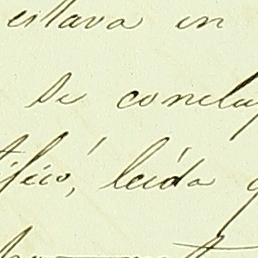 estava en
se concluy
tificó, leída q